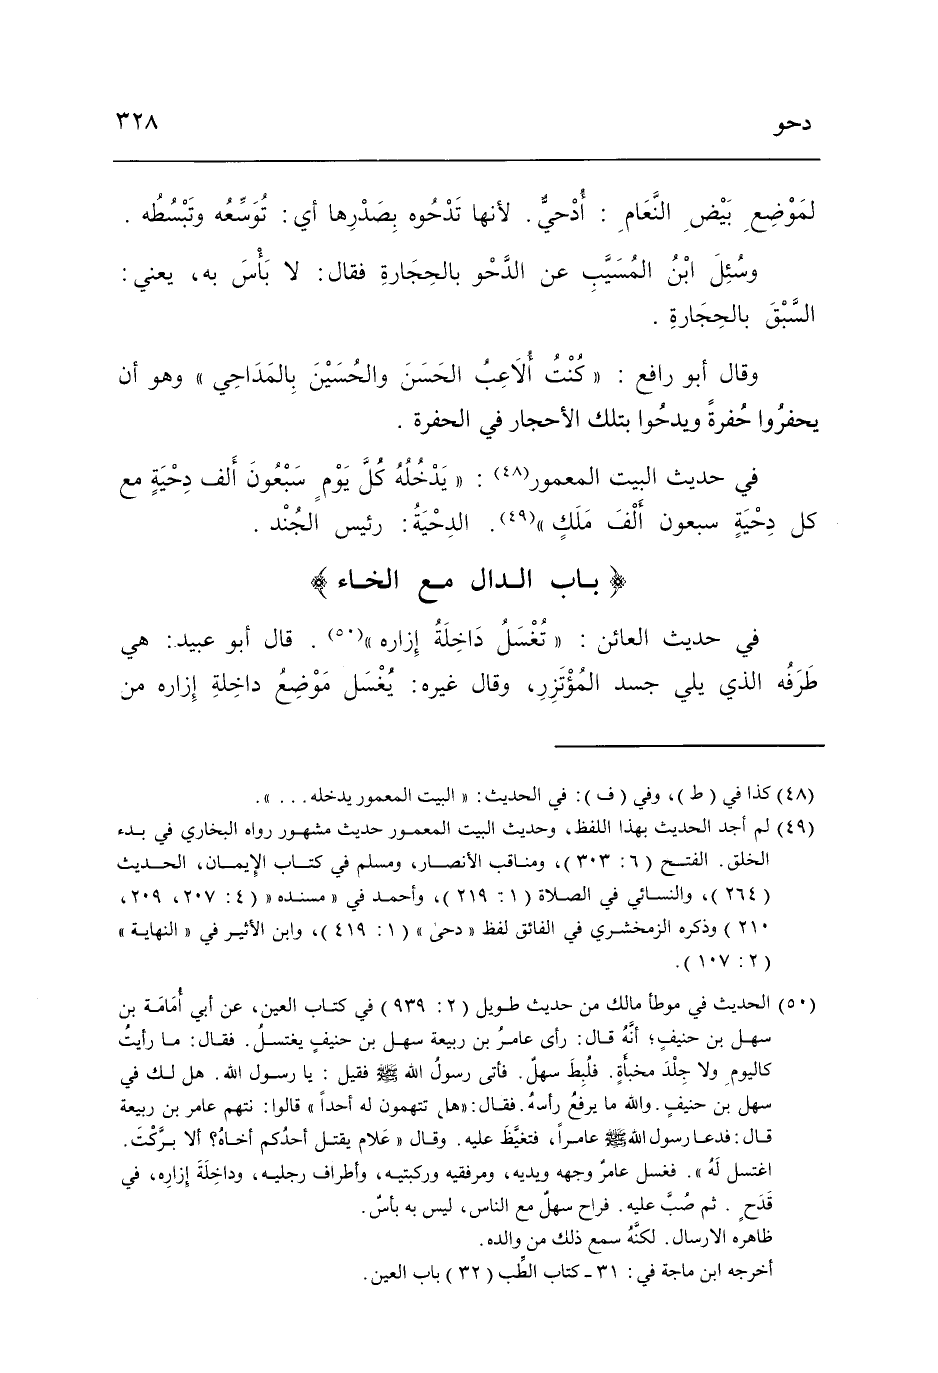 دحو ٣٢٨
لمَوْضِعِ بَيْضِ النَّعَامِ : أُدْحيٌّ . لأنها تَدْحُوه بِصَدْرِها أي : تُوَسِّعُه وتَبْسُطُه .
وسُئِلَ ابْنُ المُسَيَّبِ عن الدَّحْو بالحِجَارةِ فقال : لا بَأْسَ به ، يعني :
السَّبْقَ بالحِجَارةِ .
وقال أبو رافع : « كُنْتُ أُلَاعِبُ الحَسَنَ والحُسَيْنَ بِالمَدَاحِي » وهو أن
يحفرُوا حُفرةً ويدحُوا بتلك الأحجار في الحفرة .
في حديث البيت المعمور(٤٨) : « يَدْخُلُهُ كُلَّ يَوْمٍ سَبْعُونَ أَلف دِحْيَةٍ مع
كل دِحْيَةٍ سبعون أَلْفَ مَلَكٍ »(٤٩). الدِحْيَةُ : رئيس الجُنْد .
﴿ باب الدال مع الخاء ﴾
في حديث العائن : « تُغْسَلُ دَاخِلَةُ إزاره »(٥٠) . قال أبو عبيد : هي
طَرَفُه الذي يلي جسد المُؤْتَزِرِ، وقال غيره : يُغْسَل مَوْضِعُ داخلةِ إزاره من
(٤٨) كذا في ( ط )، وفي ( ف ) : في الحديث : « البيت المعمور يدخله . . . ».
(٤٩) لم أجد الحديث بهذا اللفظ، وحديث البيت المعمور حديث مشهور رواه البخاري في بدء
الخلق . الفتح ( ٦ : ٣٠٣ )، ومناقب الأنصار، ومسلم في كتاب الإيمان، الحديث
( ٢٦٤ )، والنسائي في الصلاة ( ١ : ٢١٩ )، وأحمد في « مسنده » ( ٤ : ٢٠٧، ٢٠٩،
٢١٠ ) وذكره الزمخشري في الفائق لفظ « دحى » ( ١ : ٤١٩ )، وابن الأثير في « النهاية »
( ٢ : ١٠٧ ).
(٥٠) الحديث في موطأ مالك من حديث طويل ( ٢ : ٩٣٩ ) في كتاب العين، عن أبي أُمَامَة بن
سهل بن حنيفٍ؛ أنَّهُ قال : رأى عامرُ بن ربيعة سهل بن حنيفٍ يغتسلُ . فقال : ما رأيتُ
كاليوم ولا جِلْدَ مخبأَةٍ . فلُبِطَ سهلٌ . فأتى رسولُ الله ﷺ فقيل : يا رسول الله . هل لك في
سهل بن حنيفٍ . والله ما يرفعُ رأسهُ . فقال : « هل تتهمون له أحداً » قالوا : نتهم عامر بن ربيعة
قال : فدعا رسول الله ﷺ عامراً، فتغيَّظَ عليه . وقال « عَلام يقتل أحدُكم أخاهُ؟ ألا برَّكْتَ .
اغتسل لَهُ ». فغسل عامرٌ وجهه ويديه، ومرفقيه وركبتيه، وأطراف رجليه، وداخِلَةَ إزارِه، في
قَدَحٍ . ثم صُبَّ عليه . فراح سهلٌ مع الناس، ليس به بأسٌ .
ظاهره الارسال . لكنَّهُ سمع ذلك من والده .
أخرجه ابن ماجة في : ٣١ - كتاب الطِّب ( ٣٢ ) باب العين .